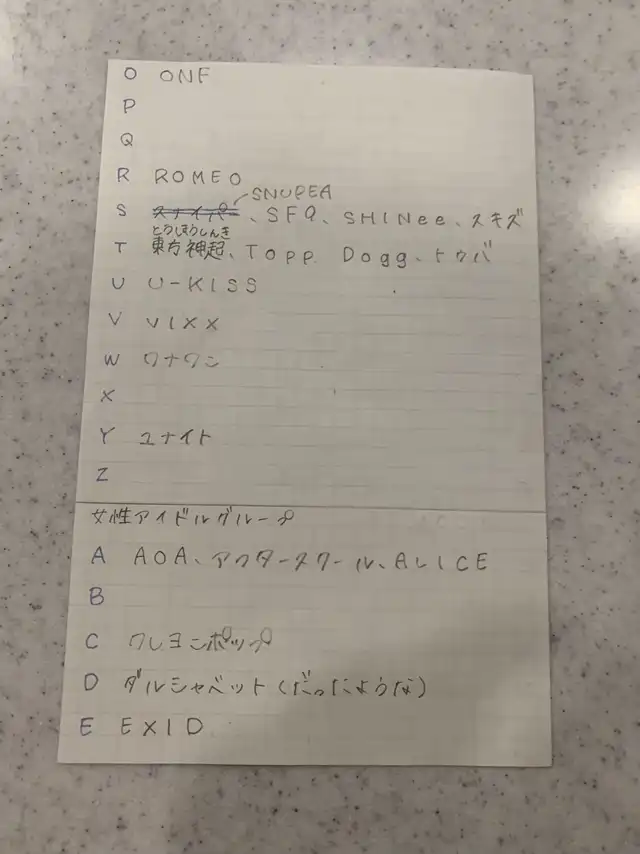 O ONF
P
Q
R ROMEO
SNUPEA
S スナイパー、SF9、SHINee、スキズ
とうほうしんき
T 東方神起、Topp Dogg、トゥバ
U U-KISS
V VIXX
W ワナワン
X
Y ユナイト
Z
女性アイドルグループ
A AOA、アフタースクール、ALICE
B
C クレヨンポップ
D ダルシャベット(だったような)
E EXID